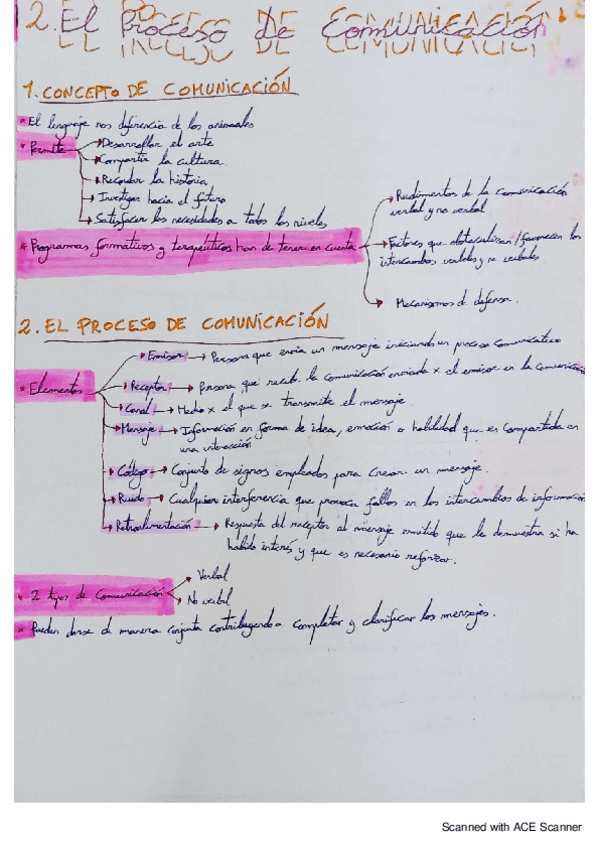 2. El Proceso de Comunicación
1. CONCEPTO DE COMUNICACIÓN
* El lenguaje nos diferencia de los animales
* Permite
→ Desarrollar el arte
→ Compartir la cultura.
→ Recordar la historia
→ Investigar hacia el futuro
→ Satisfacer las necesidades a todos los niveles
* Programas formativos y terapéuticos han de tener en cuenta
→ Rudimentos de la comunicación
verbal y no verbal
→ Factores que obstaculizan / favorecen los
intercambios verbales y no verbales
→ Mecanismos de defensa.
2. EL PROCESO DE COMUNICACIÓN
* Elementos
→ Emisor → Persona que envia un mensaje iniciando un proceso comunicativo
→ Receptor → Persona que recibe la comunicación enviada x el emisor en la comunicación
→ Canal → Medio x el que se transmite el mensaje.
→ Mensaje → Información en forma de idea, emoción o habilidad que es compartida en
una interacción
→ Código → Conjunto de signos empleados para crear un mensaje.
→ Ruido → Cualquier interferencia que provoca fallos en los intercambios de información
→ Retroalimentación → Respuesta del receptor al mensaje emitido que le demuestra si ha
habido interés y que es necesario reforzar.
* 2 tipos de Comunicación
→ Verbal
→ No verbal
* Pueden darse de manera conjunta contribuyendo a completar y clarificar los mensajes.
Scanned with ACE Scanner